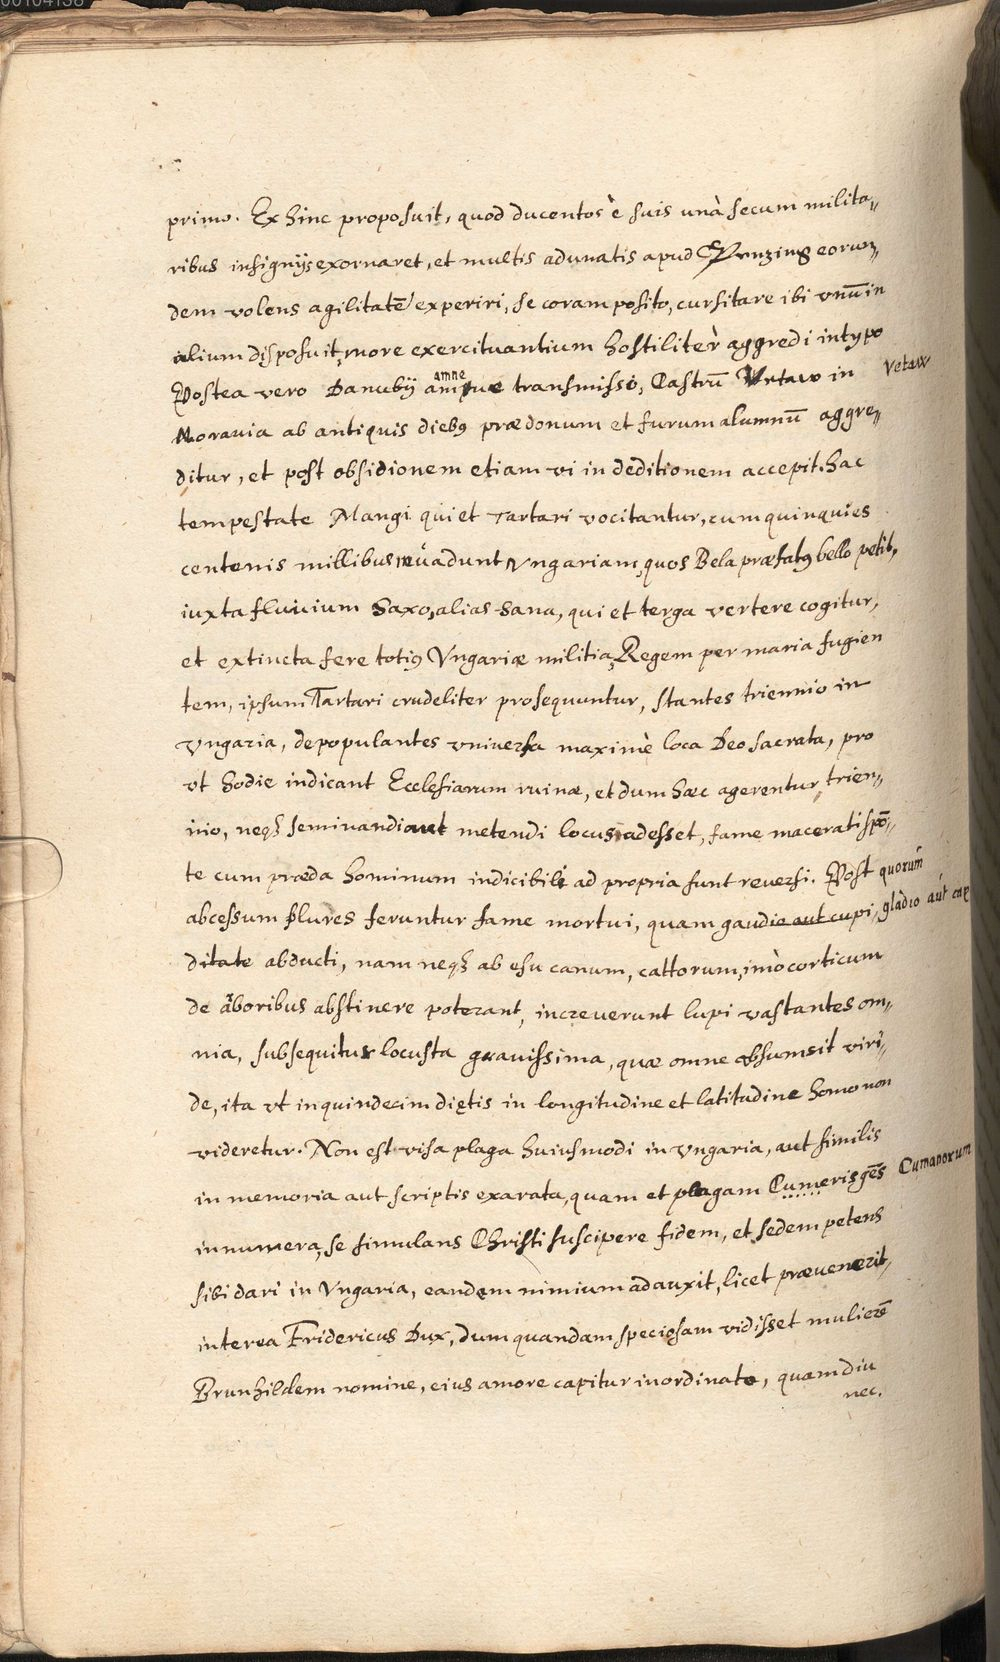 00104138
primo. Ex hinc proposuit, quod ducentos è suis unà secum milita„
ribus insignijs exornaret, et multis adunatis apud Penzing eorun„
dem volens agilitatē experiri, se coram posito, cursitare ibi vnū in
alium disposuit, more exercituantium hostilitèr aggredi in typo
Postea vero Danubij amne transmisso, Castrū Vetaw in Vetaw
Moravia ab antiquis diebꝰ prædonum et furum alumnū aggre„
ditur, et post obsidionem etiam vi in deditionem accepit. hac
tempestate Mangi qui et Tartari vocitantur, cum quinquies
centenis millibus invadunt Vngariam, quos Bela præfatꝰ bello petit,
iuxta fluvium Saxo, alias Sana, qui et terga vertere cogitur,
et extincta fere totiꝰ Vngariæ militia, Regem per maria fugien
tem, ipsum Tartari crudeliter prosequuntur, stantes triennio in
Vngaria, depopulantes vniversa maximè loca Deo sacrata, pro
vt hodie indicant Ecclesiarum ruinæ, et dum hæc agerentur trien„
nio, neqꝫ seminandi aut metendi locus adesset, fame macerati spō„
te cum præda hominum indicibili ad propria sunt reversi. Post quorum
abcessum plures feruntur fame mortui, quam gaudio aut cupi gladio aut cap
ditate abducti, nam neqꝫ ab esu canum, cattorum, imò corticum
de arboribus abstinere poterant, increverunt lupi vastantes om„
nia, subsequitur locusta gravissima, quæ omne absumsit viri„
de, ita vt in quindecim diętis in longitudine et latitudine homo non
videretur. Non est visa plaga huiusmodi in Vngaria, aut similis
in memoria aut scriptis exarata, quam et plagam Cumeris gēs Cumanorum
innumera, se simulans Christi suscipere fidem, et sedem petens
sibi dari in Vngaria, eandem nimium adauxit, licet prævenerit,
interea Fridericus Dux, dum quandam speciosam vidisset mulierē
Brunhildem nomine, eius amore capitur inordinato, quam diu
nec.